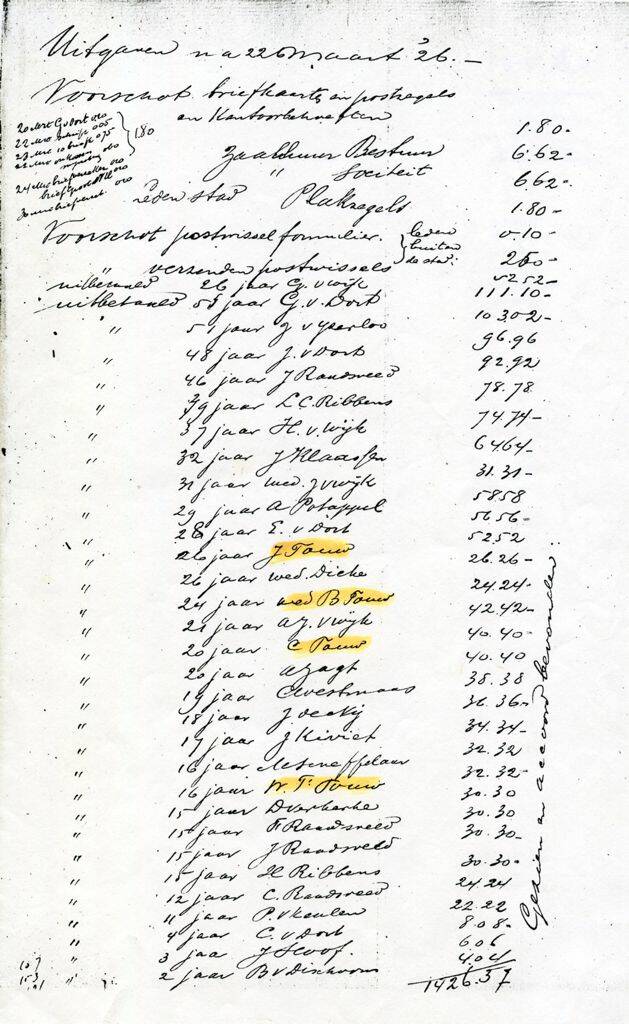 Uitgaven na 22 Maart '26.-
Voorschot briefkaarten postzegels
en Kantoorbehoeften 1.80-
20 Mrt G v Dort 010
22 Mrt 005
23 Mrt 10 briefk 075
22 Mrt 060
24 Mrt briefkaarten 010
010
30 Mrt briefkaart 010
1.80
Zaalhuur Bestuur 6.62-
" Sociëteit 6.62-
leden stad Plakzegels 1.80-
Voorschot postwissel formulier. 0.10-
" verzenden postwissels 2.60-
leden buiten de stad.
uitbetaald 26 jaar G. v Wijk 52.52-
uitbetaald 55 jaar G. v. Dort 111.10-
" 51 jaar J v IJzerloo 103.02-
" 48 jaar J. v Dort 96.96
" 46 jaar J Raadsveld 92.92
" 39 jaar L. C. Ribbens 78.78
" 37 jaar H. v. Wijk 74.74-
" 32 jaar J Klaassen 64.64
" 31 jaar wed. J v Wijk 31.31-
" 29 jaar A Potappel 58.58
" 28 jaar E. v Dort 56.56-
" 26 jaar J Touw 52.52
" 26 jaar wed. Dicke 26.26-
" 24 jaar wed B Touw 24.24-
" 21 jaar A. J. v Wijk 42.42-
" 20 jaar C Touw 40.40-
" 20 jaar A Jagt 40.40
" 19 jaar C Westmaas 38.38
" 18 jaar J de Kij 36.36-
" 17 jaar J Kiviet 34.34-
" 16 jaar M Scheffelaar 32.32
" 16 jaar W. T. Touw 32.32-
" 15 jaar D verkerke 30.30
" 15 jaar F. Raadsveld 30.30
" 15 jaar J Raadsveld 30.30-
" 15 jaar H Ribbens 30.30-
" 12 jaar C. Raadsveld 24.24
" 11 jaar P. v Keulen 22.22
" 4 jaar C. v Dort 8.08-
" 3 jaar J Hoof. 6.06
" 2 jaar B v Dishoorn 4.04
1426.37
Gezien en accoord bevonden